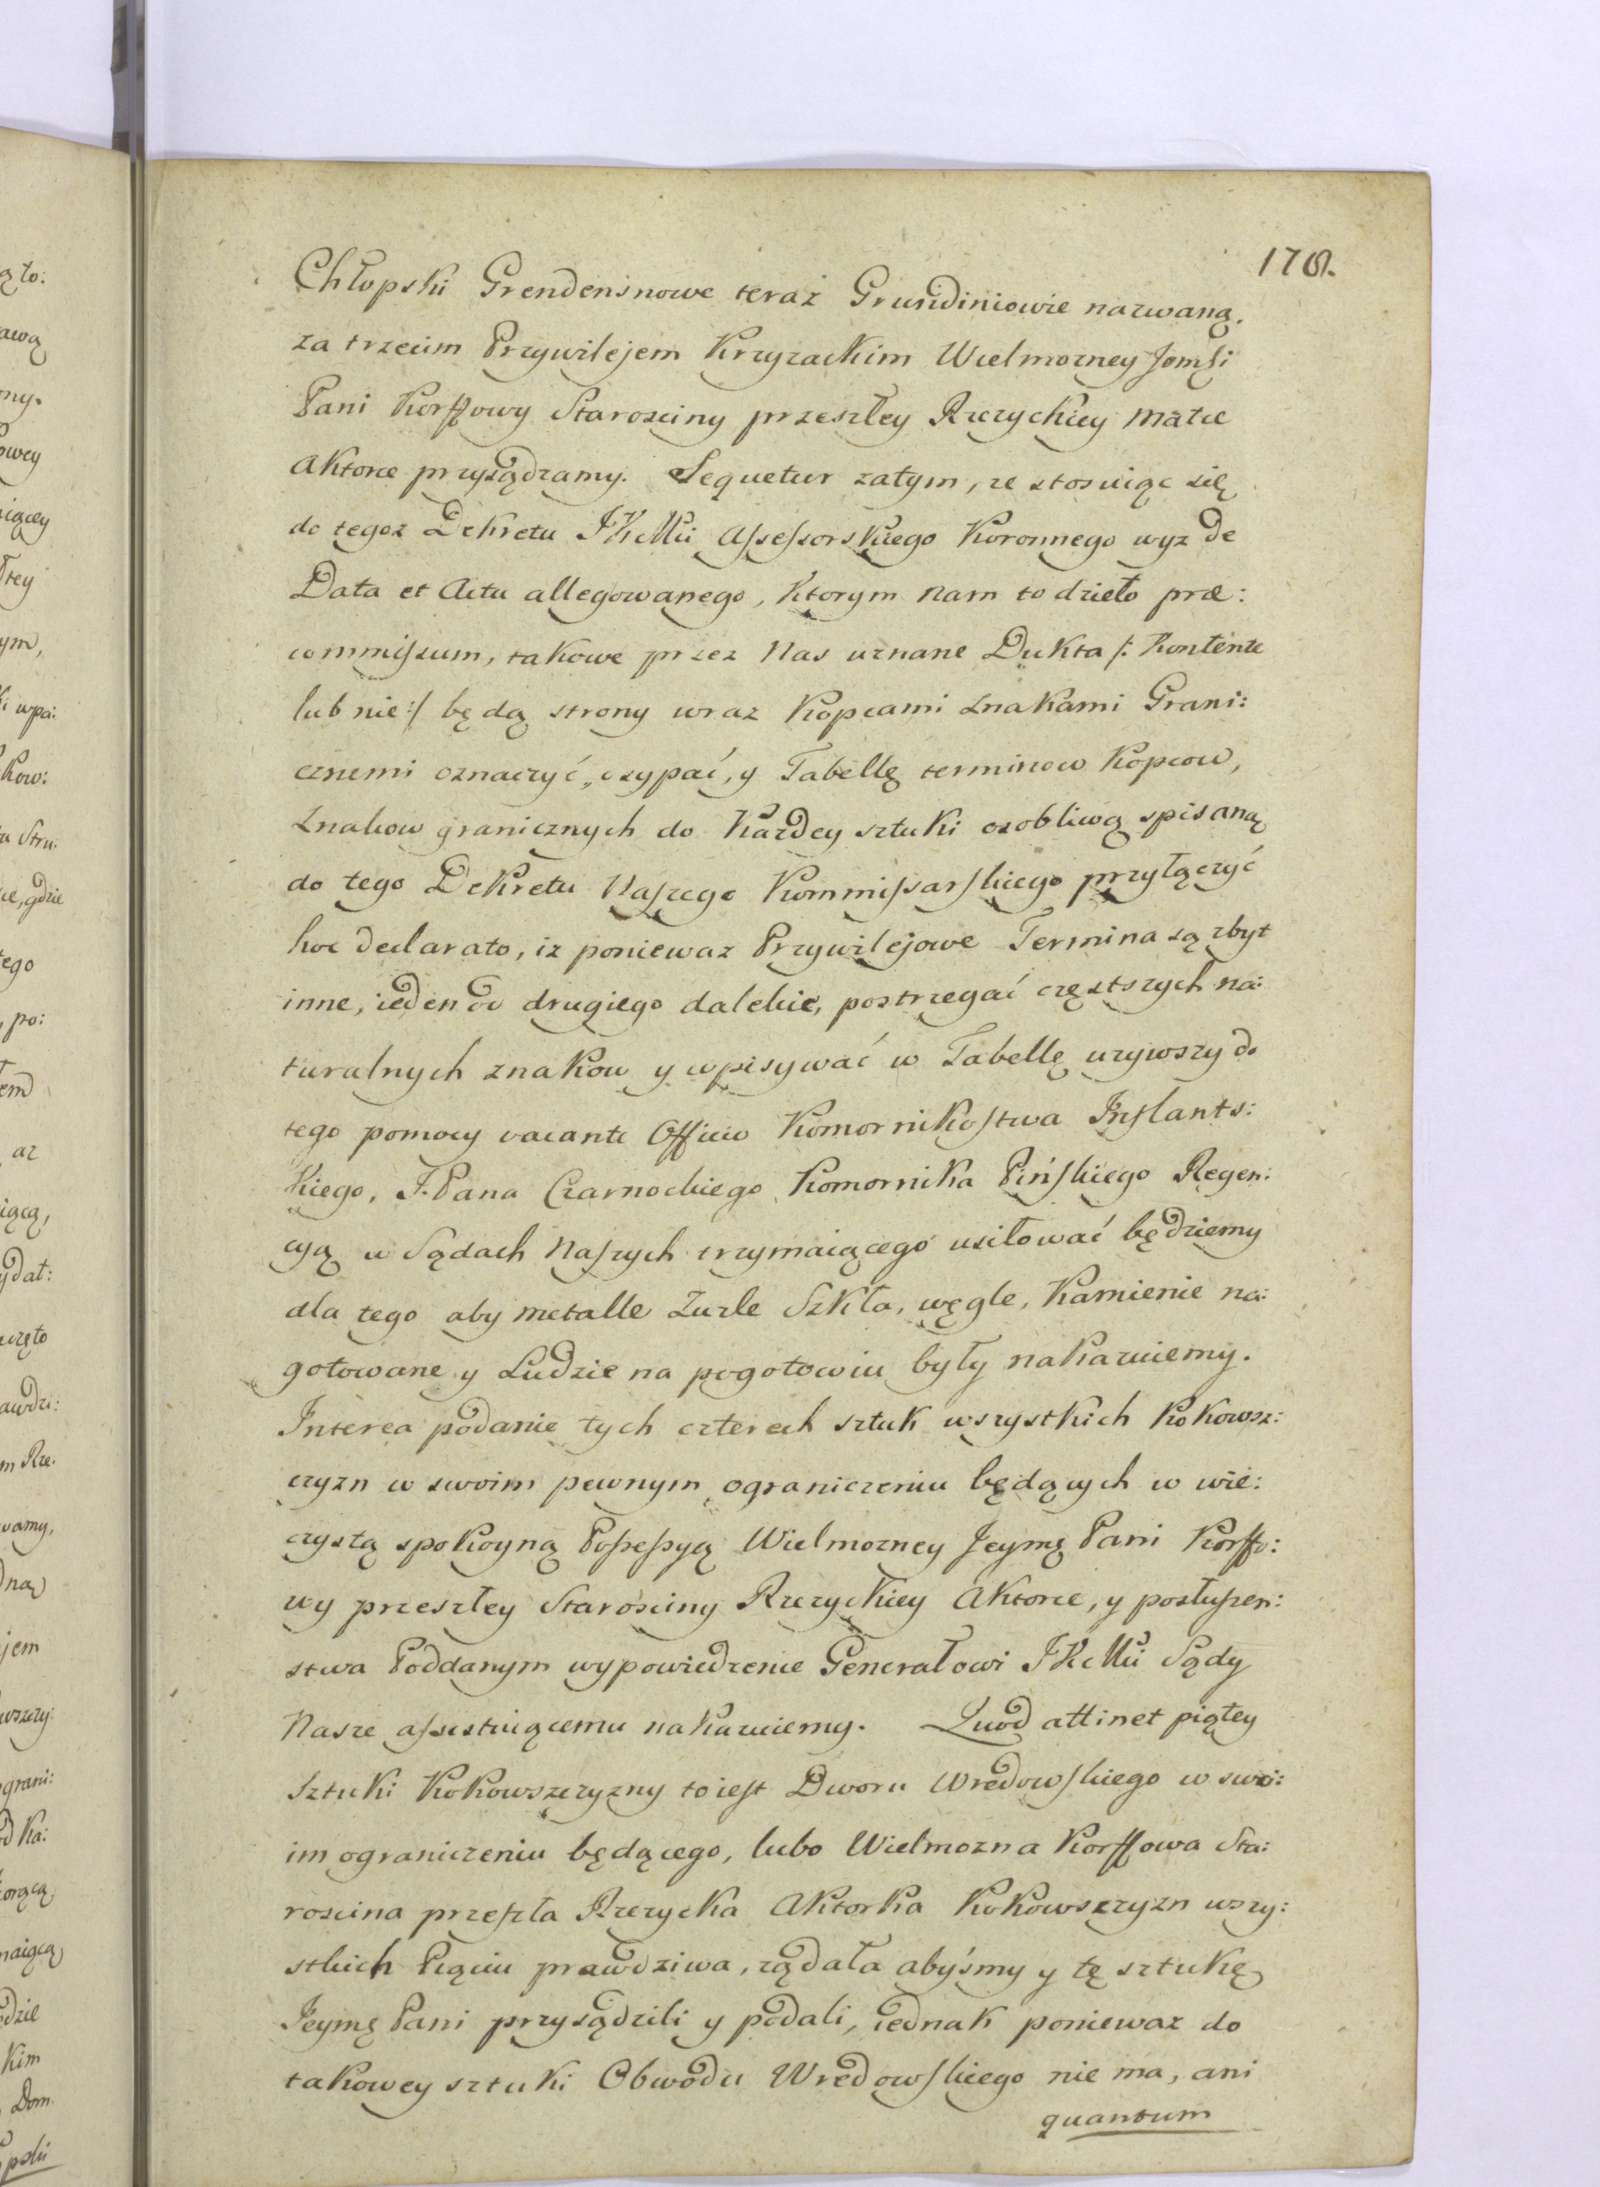 176.
Chłopski Grendensnowe teraz Grundiniowie nazwaną.
za trzecim Przywilejem Krzyzackim Wielmozney Jomsi
Pani Korffowy Starosciny przeszłey Rzezyckiey matce
Aktorce przysądzamy. Sequetur zatym, ze stosuiąc się
do tegoz Dekretu JKcMci Assessorskiego Koronnego wyz de
Data et Actu allegowanego, ktorym nam to dzieło præ:
commissum, takowe przez Nas uznane Dukta /: Kontente
lub nie :/ będą strony wraz Kopcami znakami Grani:
cznemi oznaczyć, usypać, y Tabellę terminow Kopcow,
znakow granicznych do kazdey sztuki osobliwą spisaną
do tego Dekretu Naszego Kommissarskiego przyłączyć
hoc declarato, iz poniewaz Przywilejowe Termina są zbyt
inne, ieden od drugiego dalekie, postrzegać częstszych na:
turalnych znakow y wpisywać w Tabellę uzywszy do
tego pomocy vacante Officio Komornikostwa Inflants:
kiego, J. Pana Czarnockiego Komornika Pińskiego Regen:
cyą w Sądach Naszych trzymaiącego usiłować będziemy
dla tego aby metalle Zuzle Szkła, węgle, Kamienie na:
gotowane y Ludzie na pogotowiu były nakazuiemy.
Interea podanie tych czterech sztuk wszystkich Kokowsz:
czyzn w swoim pewnym ograniczeniu będących w wie:
czystą spokoyną Possessyą Wielmozney Jeymę Pani Korffo:
wy przeszłey Starosciny Rzezyckiey Aktorce, y posłuszen:
stwa Poddanym wypowiedzenie Generałowi JKcMci Sądy
Nasze assistuiącemu nakazuiemy. Quod attinet piątey
Sztuki Kokowszczyzny to iest Dworu Wredowskiego w swo:
im ograniczeniu będącego, lubo Wielmozna Korffowa Sta:
roscina przeszła Rzezycka Aktorka Kokowszczyzn wszy:
stkich Pięciu prawdziwa, ządała abyśmy y tę sztukę
Jeymę Pani przysądzili y podali, iednak poniewaz do
takowey sztuki Obwodu Wredowskiego nie ma, ani
quantum